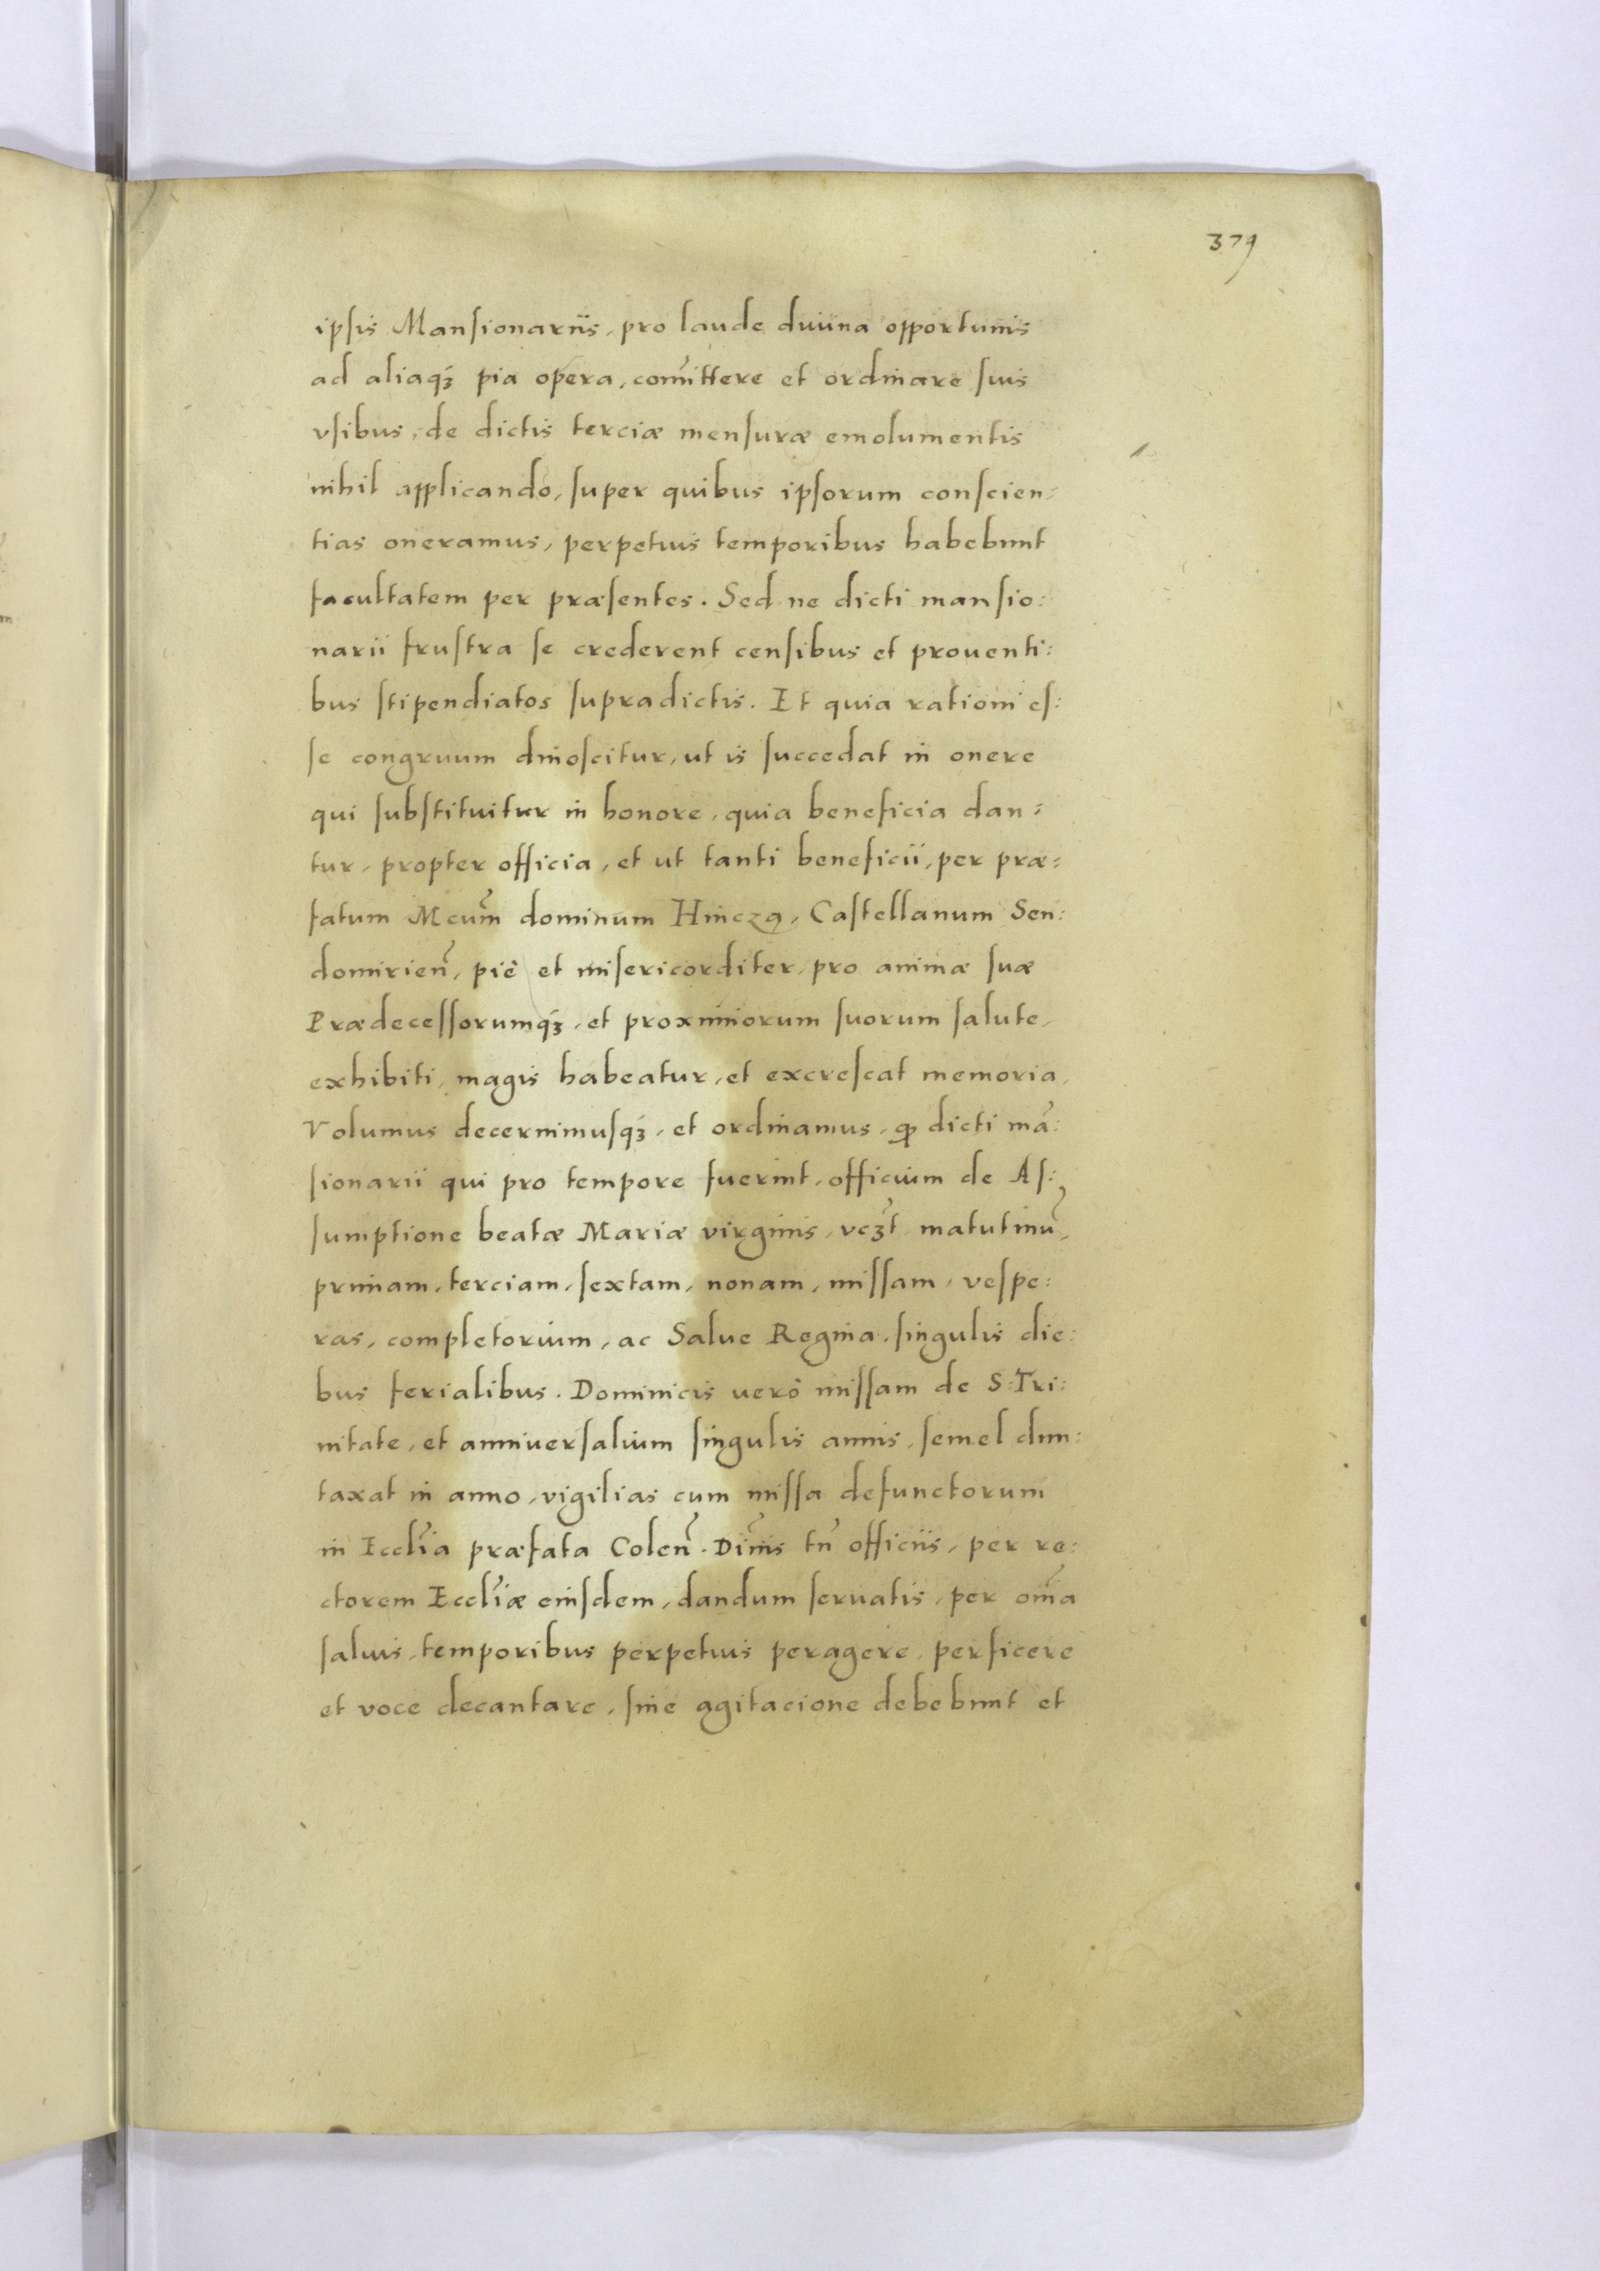 379
ipsis Mansionariis, pro laude diuina opportunis
ad aliaqꝫ pia opera, com̃ittere et ordinare suis
vsibus, de dictis terciæ mensuræ emolumentis
nihil applicando, super quibus ipsorum conscien=
tias oneramus, perpetuis temporibus habebunt
facultatem per præsentes. Sed ne dicti mansio:
narii frustra se crederent censibus et prouenti:
bus stipendiatos supradictis. Et quia rationi es:
se congruum dinoscitur, ut is succedat in onere
qui substituitur in honore, quia beneficia dan=
tur, propter officia, et ut tanti beneficii, per præ=
fatum Mcum̃ dominum Hinczą, Castellanum Sen:
domirien̄, piè et misericorditer, pro animæ suæ
Prædecessorumqꝫ, et proximiorum suorum salute,
exhibiti, magis habeatur, et excrescat memoria,
Volumus decernimusqꝫ, et ordinamus, ꝙ dicti mã:
sionarii qui pro tempore fuerint, officium de As:
sumptione beatæ Mariæ virginis, vcꝫt matutinũ,
primam, terciam, sextam, nonam, missam, vespe:
ras, completorium, ac Salue Regina, singulis die:
bus ferialibus. Dominicis uerò missam de S: Tri:
nitate, et anniuersalium singulis annis, semel dun:
taxat in anno, vigilias cum missa defunctorum
in Eccl̃ia præfata Colen̄. Diñis tñ officiis, per re:
ctorem Eccl̃iæ eiusdem, dandum seruatis, per om̃a
saluis, temporibus perpetuis peragere, perficere
et voce decantare, sine agitacione debebunt et